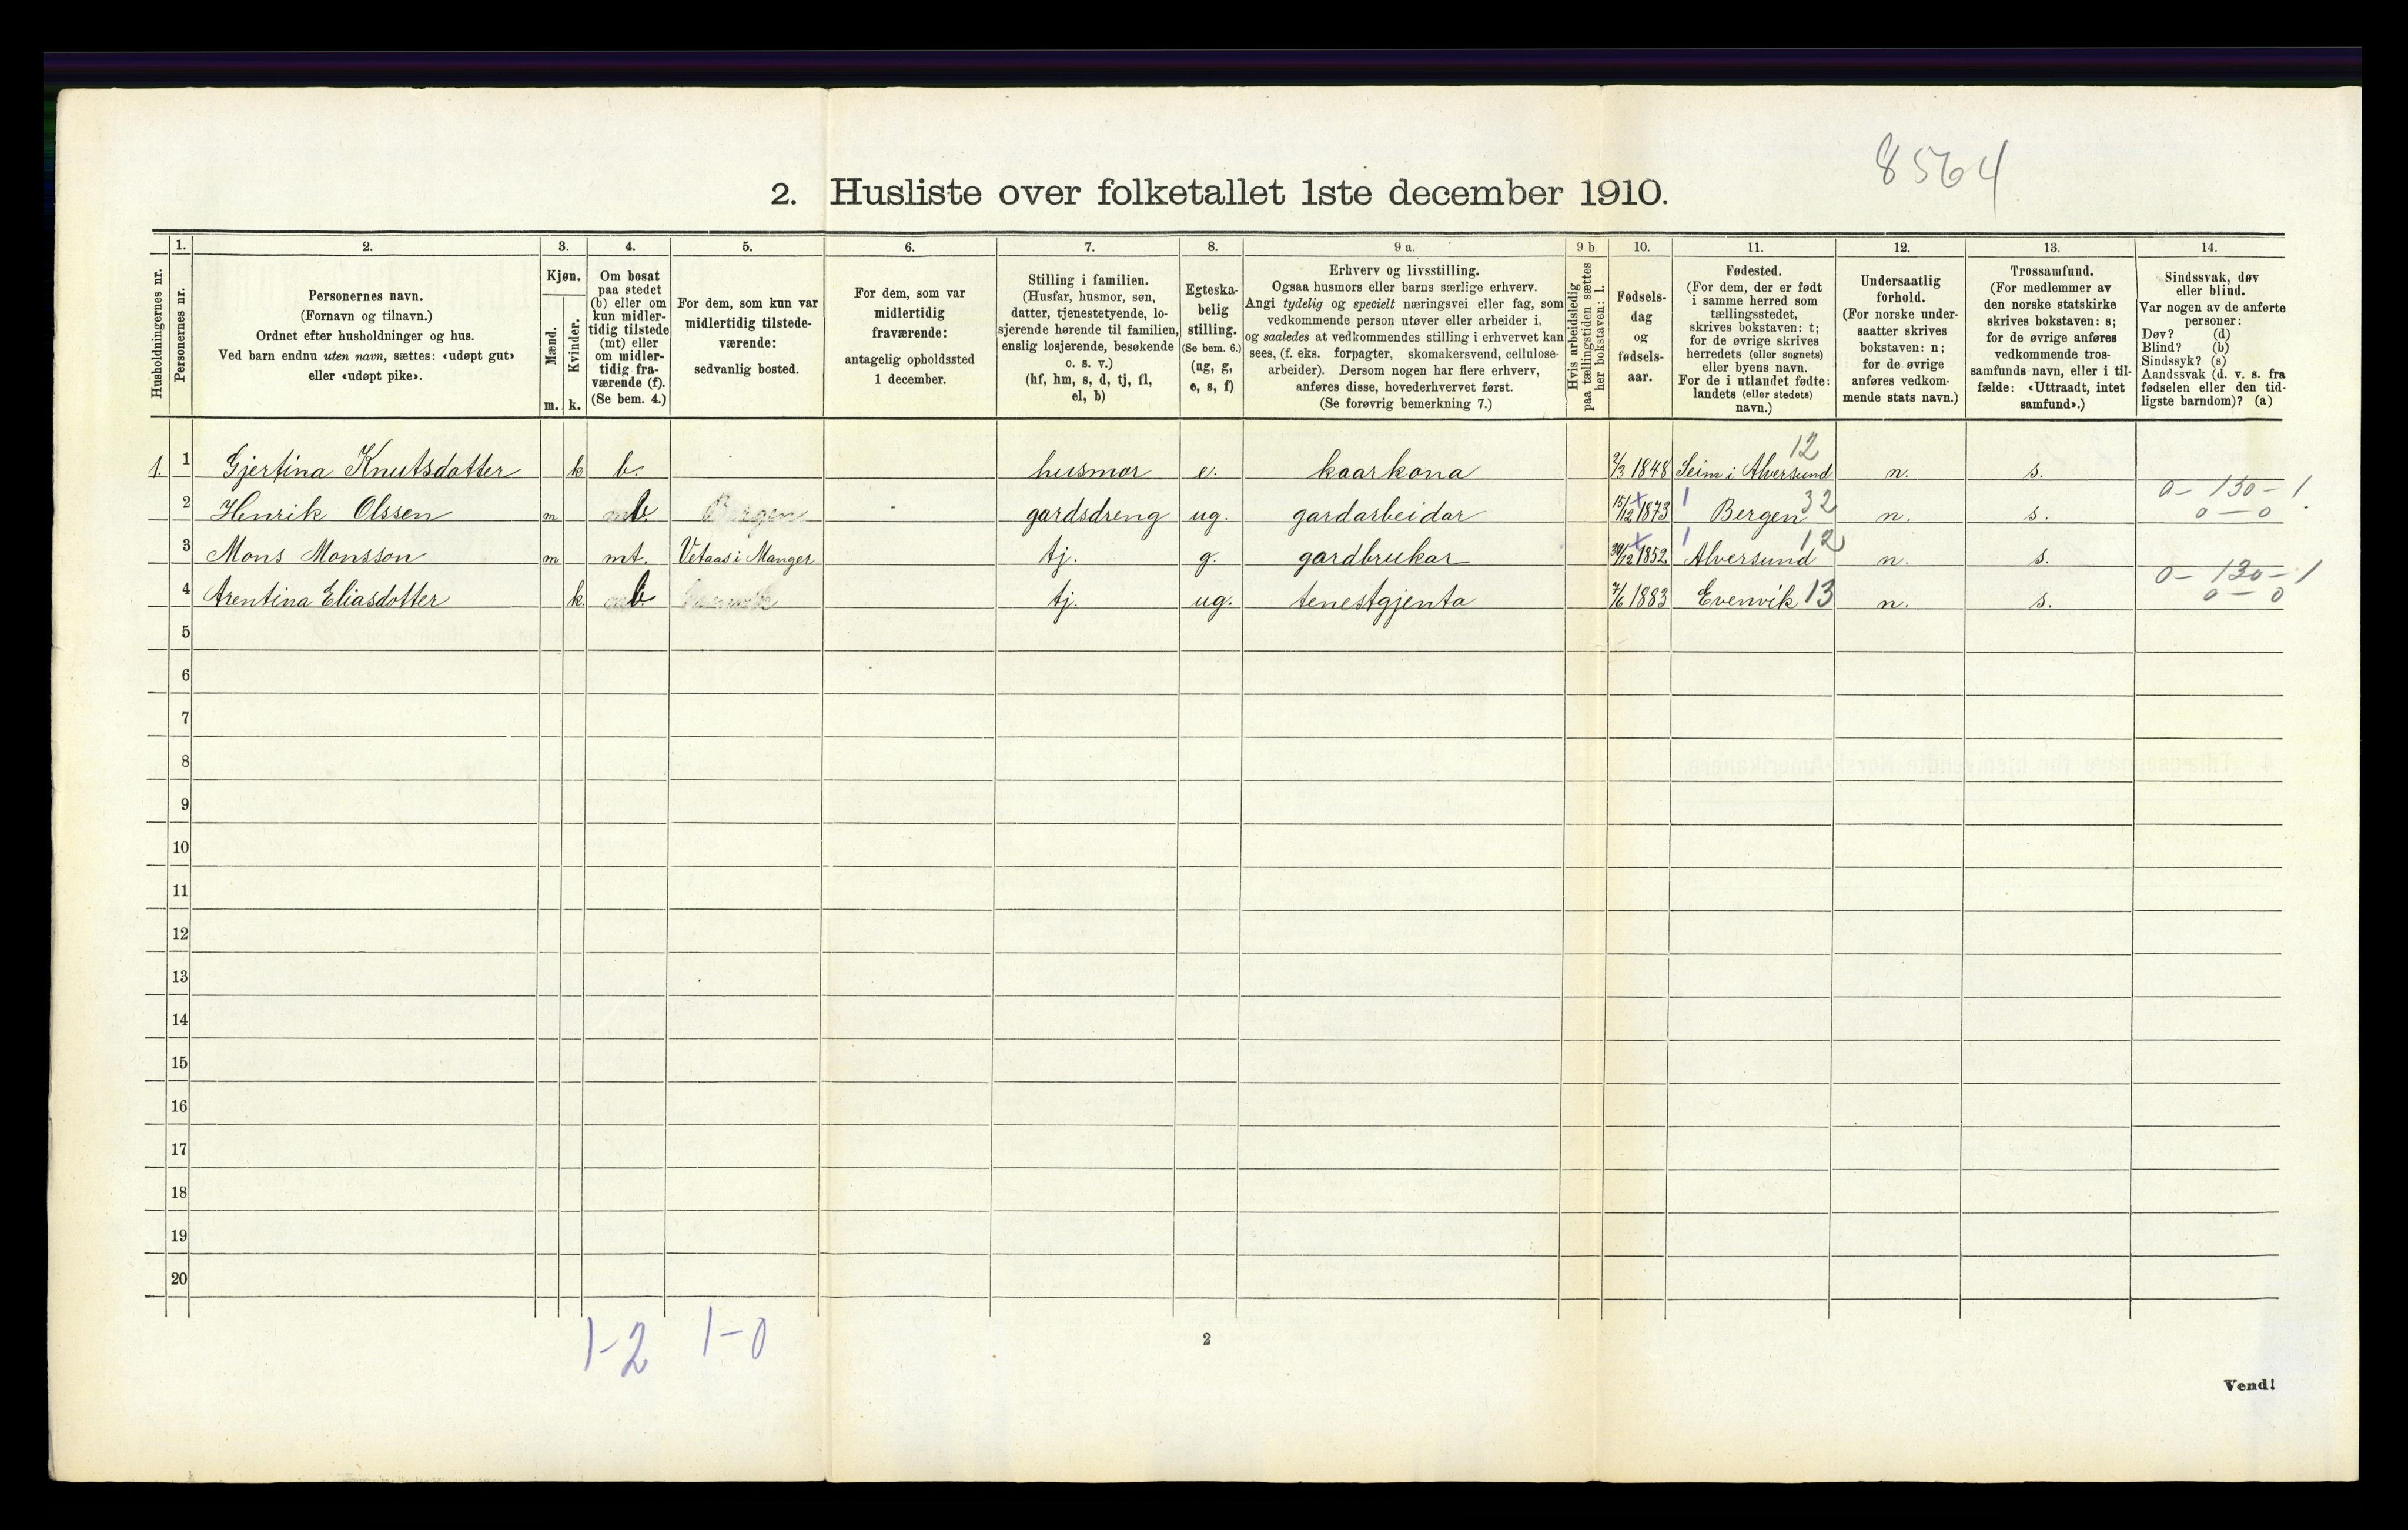 8564
2. Husliste over folketallet 1ste december 1910.
Husholdningernes nr.
1.
Personernes nr.
2.
Personernes navn.
(Fornavn og tilnavn.)
Ordnet efter husholdninger og hus.
Ved barn endnu uten navn, sættes: «udøpt gut»
eller «udøpt pike».
3.
Kjøn.
Mænd.
Kvinder.
m. k.
4.
Om bosat
paa stedet
(b) eller om
kun midler-
tidig tilstede
(mt) eller
om midler-
tidig fra-
værende (f).
(Se bem. 4.)
5.
For dem, som kun var
midlertidig tilstede-
værende:
sedvanlig bosted.
6.
For dem, som var
midlertidig
fraværende:
antagelig opholdssted
1 december.
7.
Stilling i familien.
(Husfar, husmor, søn,
datter, tjenestetyende, lo-
sjerende hørende til familien,
enslig losjerende, besøkende
o. s. v.)
(hf, hm, s, d, tj, fl,
el, b)
8.
Egteska-
belig
stilling.
(Se bem. 6.)
(ug, g,
e, s, f)
9 a.
Erhverv og livsstilling.
Ogsaa husmors eller barns særlige erhverv.
Angi tydelig og specielt næringsvei eller fag, som
vedkommende person utøver eller arbeider i,
og saaledes at vedkommendes stilling i erhvervet kan
sees, (f. eks. forpagter, skomakersvend, cellulose-
arbeider). Dersom nogen har flere erhverv,
anføres disse, hovederhvervet først.
(Se forøvrig bemerkning 7.)
9 b
Hvis arbeidsledig
paa tællingstiden sættes
her bokstaven: l.
10.
Fødsels-
dag
og
fødsels-
aar.
11.
Fødested.
(For dem, der er født
i samme herred som
tællingsstedet,
skrives bokstaven: t;
for de øvrige skrives
herredets (eller sognets)
eller byens navn.
For de i utlandet fødte:
landets (eller stedets)
navn.)
12.
Undersaatlig
forhold.
(For norske under-
saatter skrives
bokstaven: n;
for de øvrige
anføres vedkom-
mende stats navn.)
13.
Trossamfund.
(For medlemmer av
den norske statskirke
skrives bokstaven: s;
for de øvrige anføres
vedkommende tros-
samfunds navn, eller i til-
fælde: «Uttraadt, intet
samfund».)
14.
Sindssvak, døv
eller blind.
Var nogen av de anførte
personer:
Døv? (d)
Blind? (b)
Sindssyk? (s)
Aandssvak (d. v. s. fra
fødselen eller den tid-
ligste barndom)? (a)
12
1. 1 Gjertina Knutsdotter k b. husmor e. kaarkona 2/3 1848 Seim i Alversund n. s.
0 - 130 - 1
2 Henrik Olssen m b. Bergen gardsdreng ug. gardarbeidar 15/12 1873 Bergen 32 n. s. 0 - 0
3 Mons Monsson m mt. Vetaas i Manger tj. g. gardbrukar 30/12 1852 Alversund 12 n. s.
0 - 130 - 1
4 Arentina Eliasdotter k. b tj. ug. tenestgjenta 7/6 1883 Evenvik 13 n. s. 0 - 0
5
6
7
8
9
10
11
12
13
14
15
16
17
18
19
20
1-2 1-0
2
Vend!